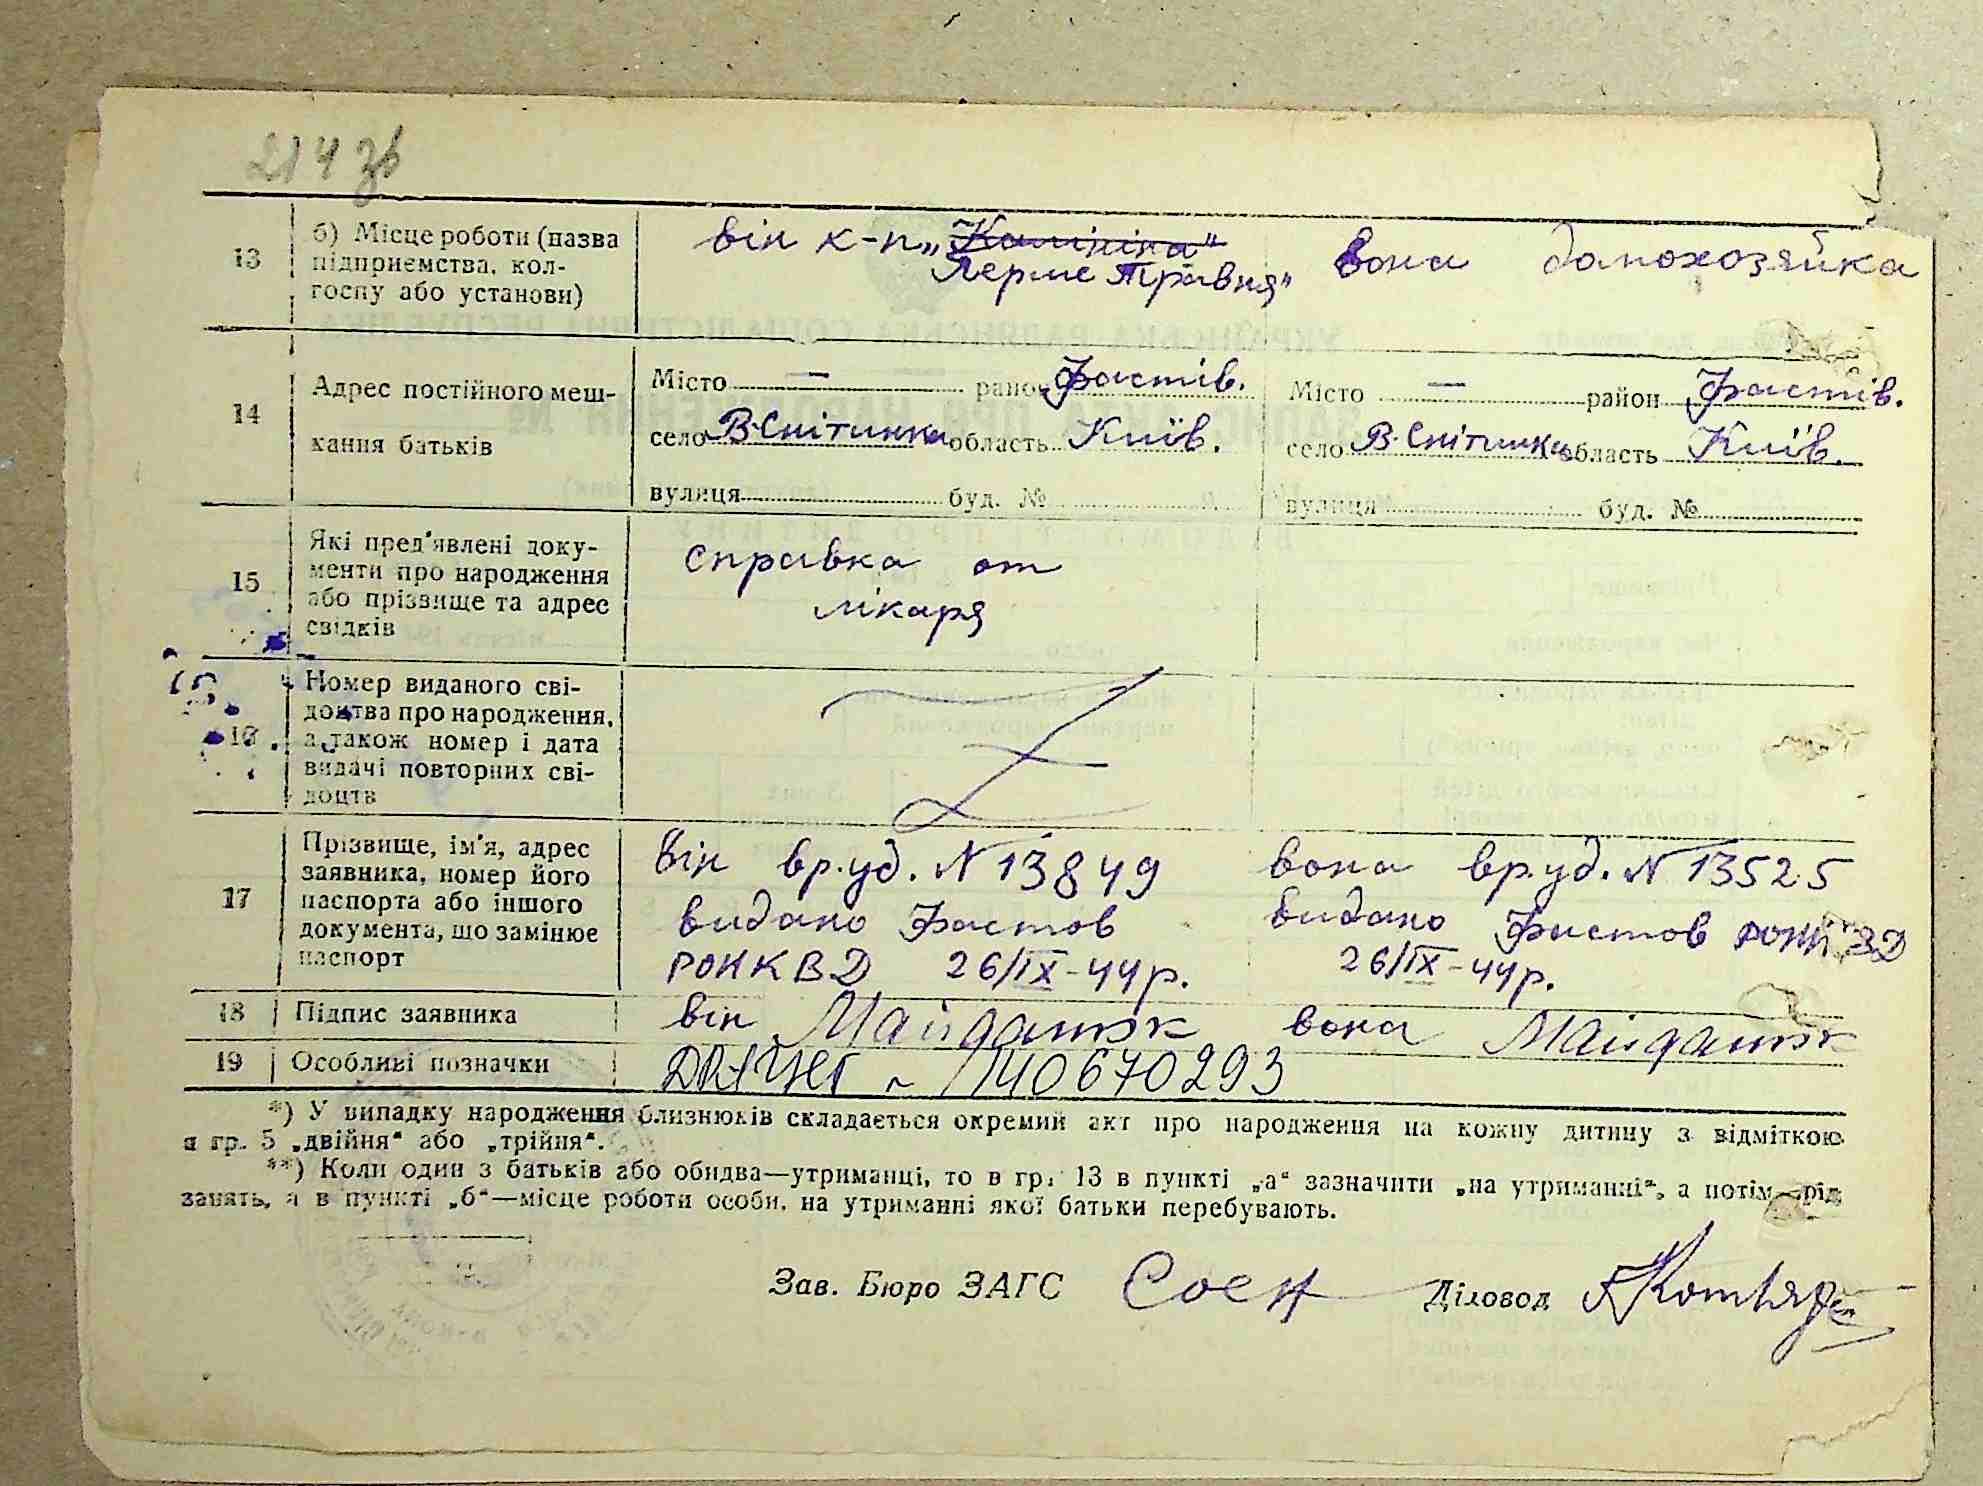 214 зв
13 б) Місце роботи (назва підприємства, кол-госпу або установи)
він к-п „Калініна"
Перше Травня" вона домохозяйка
14 Адрес постійного меш-
кання батьків
Місто — район Фастів. Місто — район Фастів.
село В-Снітинка область Київ. село В-Снітинка область Київ.
вулиця буд. № вулиця буд. №
15 Які пред'явлені доку-
менти про народження
або прізвище та адрес
свідків
справка от
лікаря
16 Номер виданого сві-
доцтва про народження,
а також номер і дата
видачі повторних сві-
доцтв
17 Прізвище, ім'я, адрес
заявника, номер його
паспорта або іншого
документа, що замінює
паспорт
він вр.уд. N 13849 вона вр.уд. N 13525
видано Фастов видано Фастов РОНКВД
РОНКВД 26/IX-44р. 26/IX-44р.
18 Підпис заявника він Майданюк вона Майданюк
19 Особливі позначки 140670293
*) У випадку народження близнюків складається окремий акт про народження на кожну дитину з відміткою
в гр. 5 „двійня" або „трійня".
**) Коли один з батьків або обидва—утриманці, то в гр. 13 в пункті „а" зазначити „на утриманні", а потім рід
занять, а в пункті „б"—місце роботи особи, на утриманні якої батьки перебувають.
Зав. Бюро ЗАГС Діловод